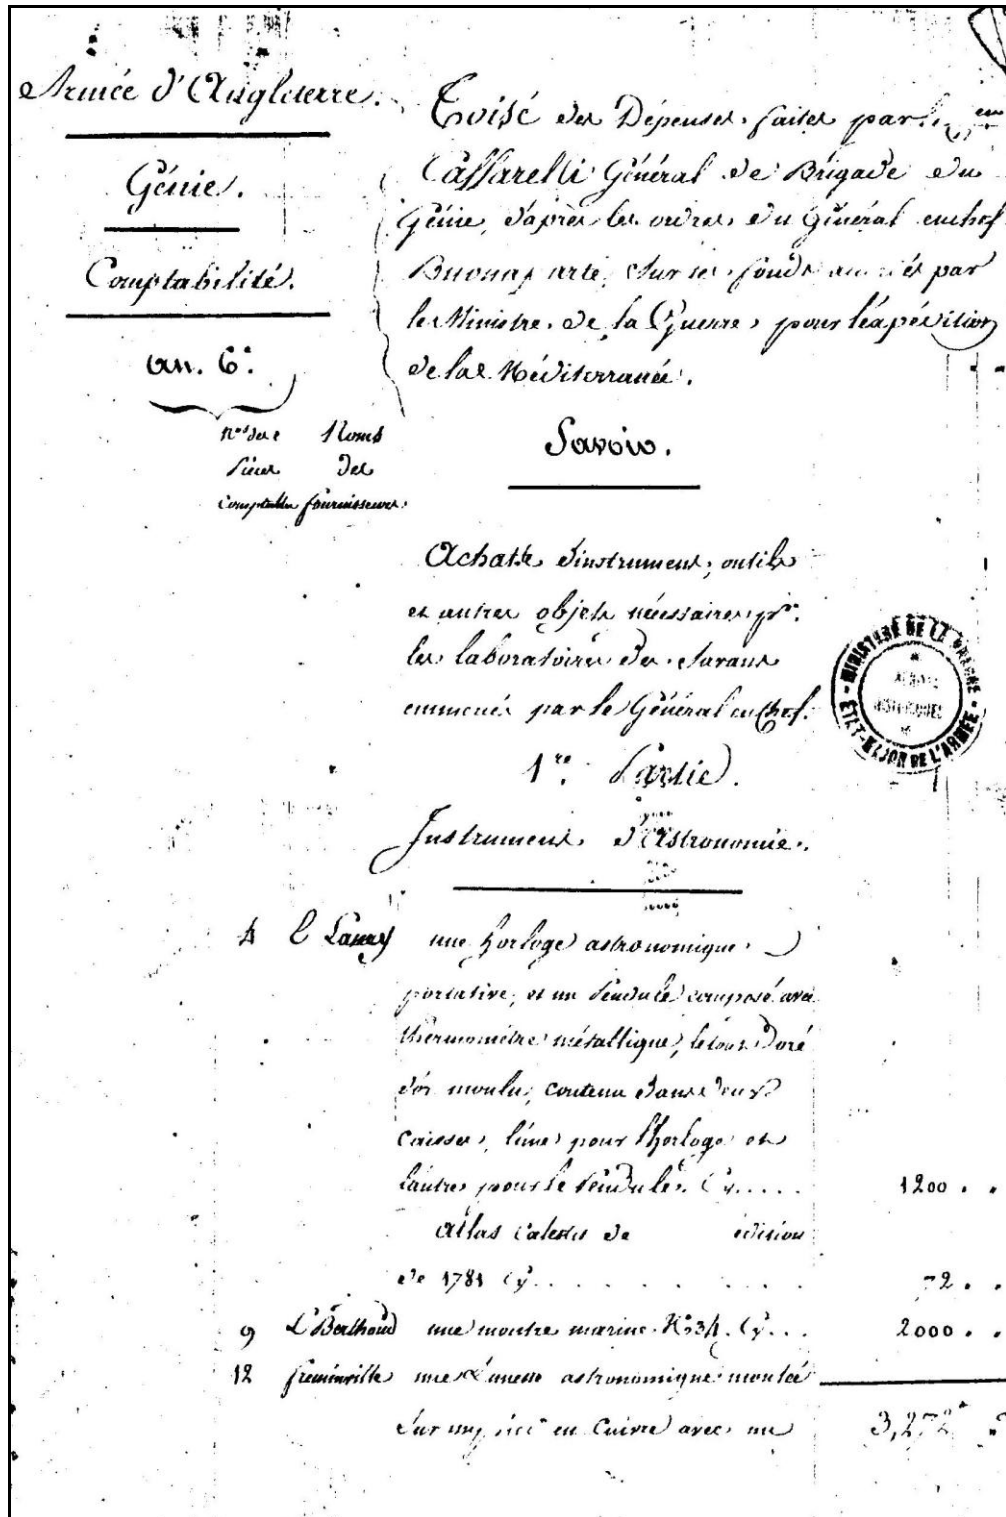 Armée d'Angleterre.
Génie.
Comptabilité.
an. 6.e
Toisé des Dépenses faites par le
Caffarelli Général de Brigade du
Génie, d'après les ordres du Général en chef
Buonaparte, sur les fonds par
le Ministre de la Guerre, pour l'expédition
de la Méditerranée.
Nos des Noms
Pièces des
Comptables fournisseurs.
Savoir.
Achats d'instrumens, outils
et autres objets nécessaires pr.
les laboratoires des Savans
emmenés par le Général en Chef.
MINISTÈRE DE LA GUERRE
HISTORIQUES
ÉTAT-MAJOR DE L'ARMÉE
1re. Partie.
Instrumens d'Astronomie.
4 une horloge astronomique
portative, et un Pendule composé avec
thermomètre métallique, le tout Doré
d'or moulu, contenu dans deux
caisses, l'une pour l'horloge et
l'autre pour le Pendule. Cy..... 1200 . .
Atlas Celestes de édition
de 1781 Cy. . . . . . . . 72 . .
9 L. Berthoud une montre marine No 34. Cy... 2000 . .
12 freminville une Lunette astronomique montée
Sur un pied en Cuivre avec une 3,272